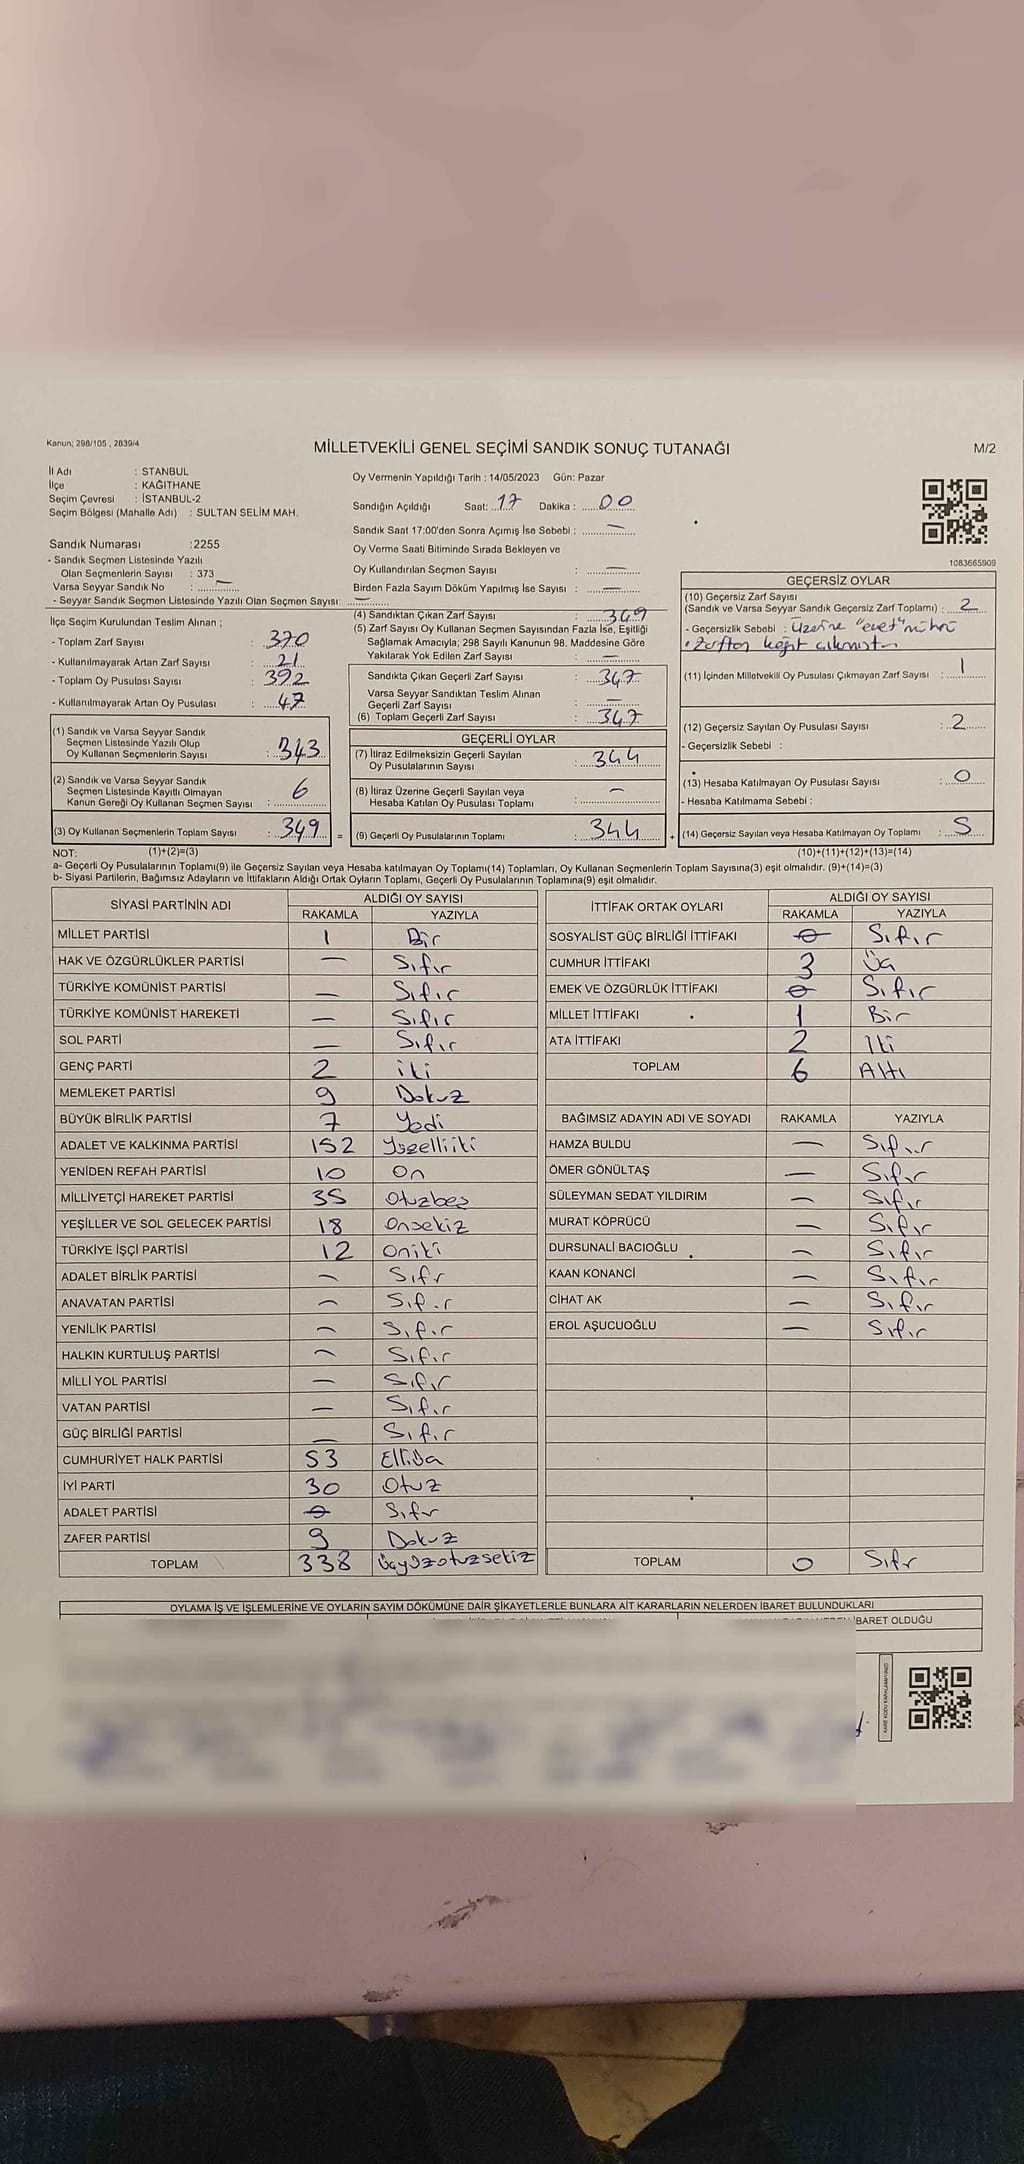 Kanun; 298/105 , 2839/4
MİLLETVEKİLİ GENEL SEÇİMİ SANDIK SONUÇ TUTANAĞI
M/2
İl Adı : STANBUL
İlçe : KAĞITHANE
Seçim Çevresi : İSTANBUL-2
Seçim Bölgesi (Mahalle Adı) : SULTAN SELİM MAH.
Sandık Numarası :2255
- Sandık Seçmen Listesinde Yazılı
Olan Seçmenlerin Sayısı : 373
Varsa Seyyar Sandık No : —
- Seyyar Sandık Seçmen Listesinde Yazılı Olan Seçmen Sayısı: —
İlçe Seçim Kurulundan Teslim Alınan ;
- Toplam Zarf Sayısı : 370
- Kullanılmayarak Artan Zarf Sayısı : 21
- Toplam Oy Pusulası Sayısı : 392
- Kullanılmayarak Artan Oy Pusulası : 47
(1) Sandık ve Varsa Seyyar Sandık
Seçmen Listesinde Yazılı Olup
Oy Kullanan Seçmenlerin Sayısı : 343
(2) Sandık ve Varsa Seyyar Sandık
Seçmen Listesinde Kayıtlı Olmayan
Kanun Gereği Oy Kullanan Seçmen Sayısı : 6
(3) Oy Kullanan Seçmenlerin Toplam Sayısı : 349 =
Oy Vermenin Yapıldığı Tarih : 14/05/2023 Gün: Pazar
Sandığın Açıldığı Saat: 17 Dakika : 00
Sandık Saat 17:00'den Sonra Açımış İse Sebebi : —
Oy Verme Saati Bitiminde Sırada Bekleyen ve
Oy Kullandırılan Seçmen Sayısı : —
Birden Fazla Sayım Döküm Yapılmış İse Sayısı : —
(4) Sandıktan Çıkan Zarf Sayısı : 349
(5) Zarf Sayısı Oy Kullanan Seçmen Sayısından Fazla İse, Eşitliği
Sağlamak Amacıyla; 298 Sayılı Kanunun 98. Maddesine Göre
Yakılarak Yok Edilen Zarf Sayısı : —
Sandıkta Çıkan Geçerli Zarf Sayısı : 347
Varsa Seyyar Sandıktan Teslim Alınan
Geçerli Zarf Sayısı : —
(6) Toplam Geçerli Zarf Sayısı : 347
GEÇERLİ OYLAR
(7) İtiraz Edilmeksizin Geçerli Sayılan
Oy Pusulalarının Sayısı : 344
(8) İtiraz Üzerine Geçerli Sayılan veya
Hesaba Katılan Oy Pusulası Toplamı : —
(9) Geçerli Oy Pusulalarının Toplamı : 344 +
1083665909
GEÇERSİZ OYLAR
(10) Geçersiz Zarf Sayısı
(Sandık ve Varsa Seyyar Sandık Geçersiz Zarf Toplamı) : 2
- Geçersizlik Sebebi : üzerine "evet" mührü
• Zaftan kağıt çıkmıştır
(11) İçinden Milletvekili Oy Pusulası Çıkmayan Zarf Sayısı : 1
(12) Geçersiz Sayılan Oy Pusulası Sayısı : 2
- Geçersizlik Sebebi :
(13) Hesaba Katılmayan Oy Pusulası Sayısı : 0
- Hesaba Katılmama Sebebi :
(14) Geçersiz Sayılan veya Hesaba Katılmayan Oy Toplamı : 5
NOT: (1)+(2)=(3) (10)+(11)+(12)+(13)=(14)
a- Geçerli Oy Pusulalarının Toplamı(9) ile Geçersiz Sayılan veya Hesaba katılmayan Oy Toplamı(14) Toplamları, Oy Kullanan Seçmenlerin Toplam Sayısına(3) eşit olmalıdır. (9)+(14)=(3)
b- Siyasi Partilerin, Bağımsız Adayların ve İttifakların Aldığı Ortak Oyların Toplamı, Geçerli Oy Pusulalarının Toplamına(9) eşit olmalıdır.
SİYASİ PARTİNİN ADI ALDIĞI OY SAYISI
RAKAMLA YAZIYLA
MİLLET PARTİSİ 1 Bir
HAK VE ÖZGÜRLÜKLER PARTİSİ — Sıfır
TÜRKİYE KOMÜNİST PARTİSİ — Sıfır
TÜRKİYE KOMÜNİST HAREKETİ — Sıfır
SOL PARTİ — Sıfır
GENÇ PARTİ 2 iki
MEMLEKET PARTİSİ 9 Dokuz
BÜYÜK BİRLİK PARTİSİ 7 Yedi
ADALET VE KALKINMA PARTİSİ 152 Yüzelliiki
YENİDEN REFAH PARTİSİ 10 On
MİLLİYETÇİ HAREKET PARTİSİ 35 Otuzbeş
YEŞİLLER VE SOL GELECEK PARTİSİ 18 Onsekiz
TÜRKİYE İŞÇİ PARTİSİ 12 Oniki
ADALET BİRLİK PARTİSİ — Sıfr
ANAVATAN PARTİSİ — Sıfır
YENİLİK PARTİSİ — Sıfır
HALKIN KURTULUŞ PARTİSİ — Sıfır
MİLLİ YOL PARTİSİ — Sıfır
VATAN PARTİSİ — Sıfır
GÜÇ BİRLİĞİ PARTİSİ — Sıfır
CUMHURİYET HALK PARTİSİ 53 Elliüç
İYİ PARTİ 30 Otuz
ADALET PARTİSİ 0 Sıfr
ZAFER PARTİSİ 9 Dokuz
TOPLAM 338 Üçyüzotuzsekiz
İTTİFAK ORTAK OYLARI ALDIĞI OY SAYISI
RAKAMLA YAZIYLA
SOSYALİST GÜÇ BİRLİĞİ İTTİFAKI 0 Sıfır
CUMHUR İTTİFAKI 3 Üç
EMEK VE ÖZGÜRLÜK İTTİFAKI 0 Sıfır
MİLLET İTTİFAKI 1 Bir
ATA İTTİFAKI 2 İki
TOPLAM 6 Altı
BAĞIMSIZ ADAYIN ADI VE SOYADI RAKAMLA YAZIYLA
HAMZA BULDU — Sıfır
ÖMER GÖNÜLTAŞ — Sıfır
SÜLEYMAN SEDAT YILDIRIM — Sıfır
MURAT KÖPRÜCÜ — Sıfır
DURSUNALİ BACIOĞLU — Sıfır
KAAN KONANCİ — Sıfır
CİHAT AK — Sıfır
EROL AŞUCUOĞLU — Sıfır
TOPLAM 0 Sıfr
OYLAMA İŞ VE İŞLEMLERİNE VE OYLARIN SAYIM DÖKÜMÜNE DAİR ŞİKAYETLERLE BUNLARA AİT KARARLARIN NELERDEN İBARET BULUNDUKLARI
İBARET OLDUĞU
KARE KODU KARALAMAYINIZ